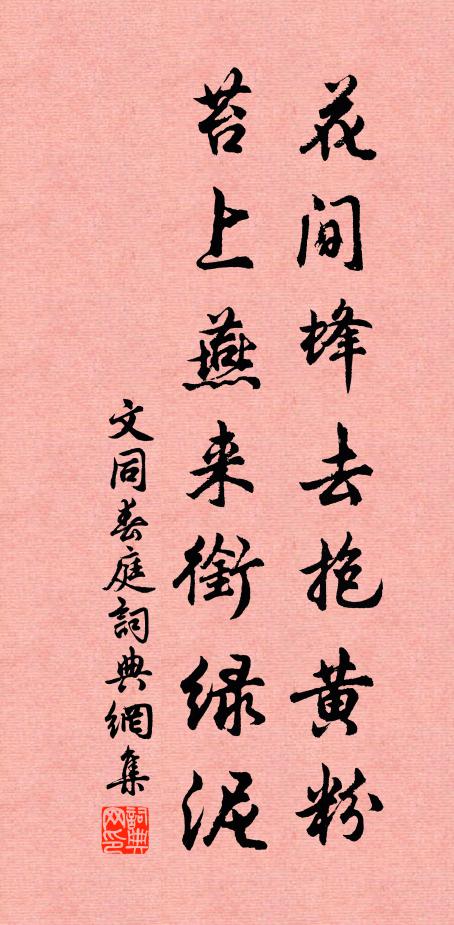 花间蜂去抱黄粉
苔上燕来銜绿泥
文同春庭詞典網集
詞典网印